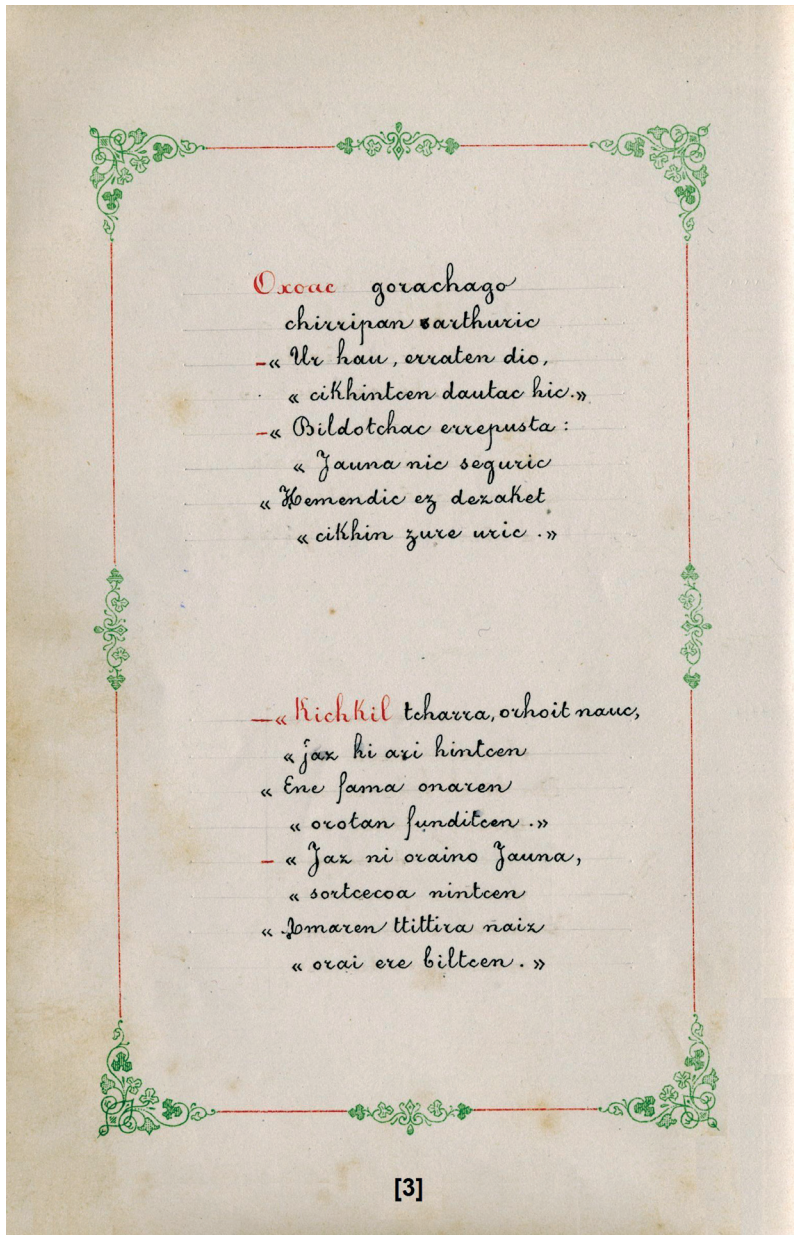 Oxoac gorachago
chirripan sarthuric
—« Ur hau, erraten dio,
« cikhintcen dautac hic.»
—« Bildotchac errepusta :
« Jauna nic seguric
« Hemendic ez dezaket
« cikhin zure uric .»
—« Kichkil tcharra, orhoit nauc,
« jaz hi ari hintcen
« Ene fama onaren
« orotan funditcen .»
— « Jaz ni oraino Jauna,
« sortcecoa nintcen
« Amaren ttittira naiz
« orai ere biltcen . »
[3]